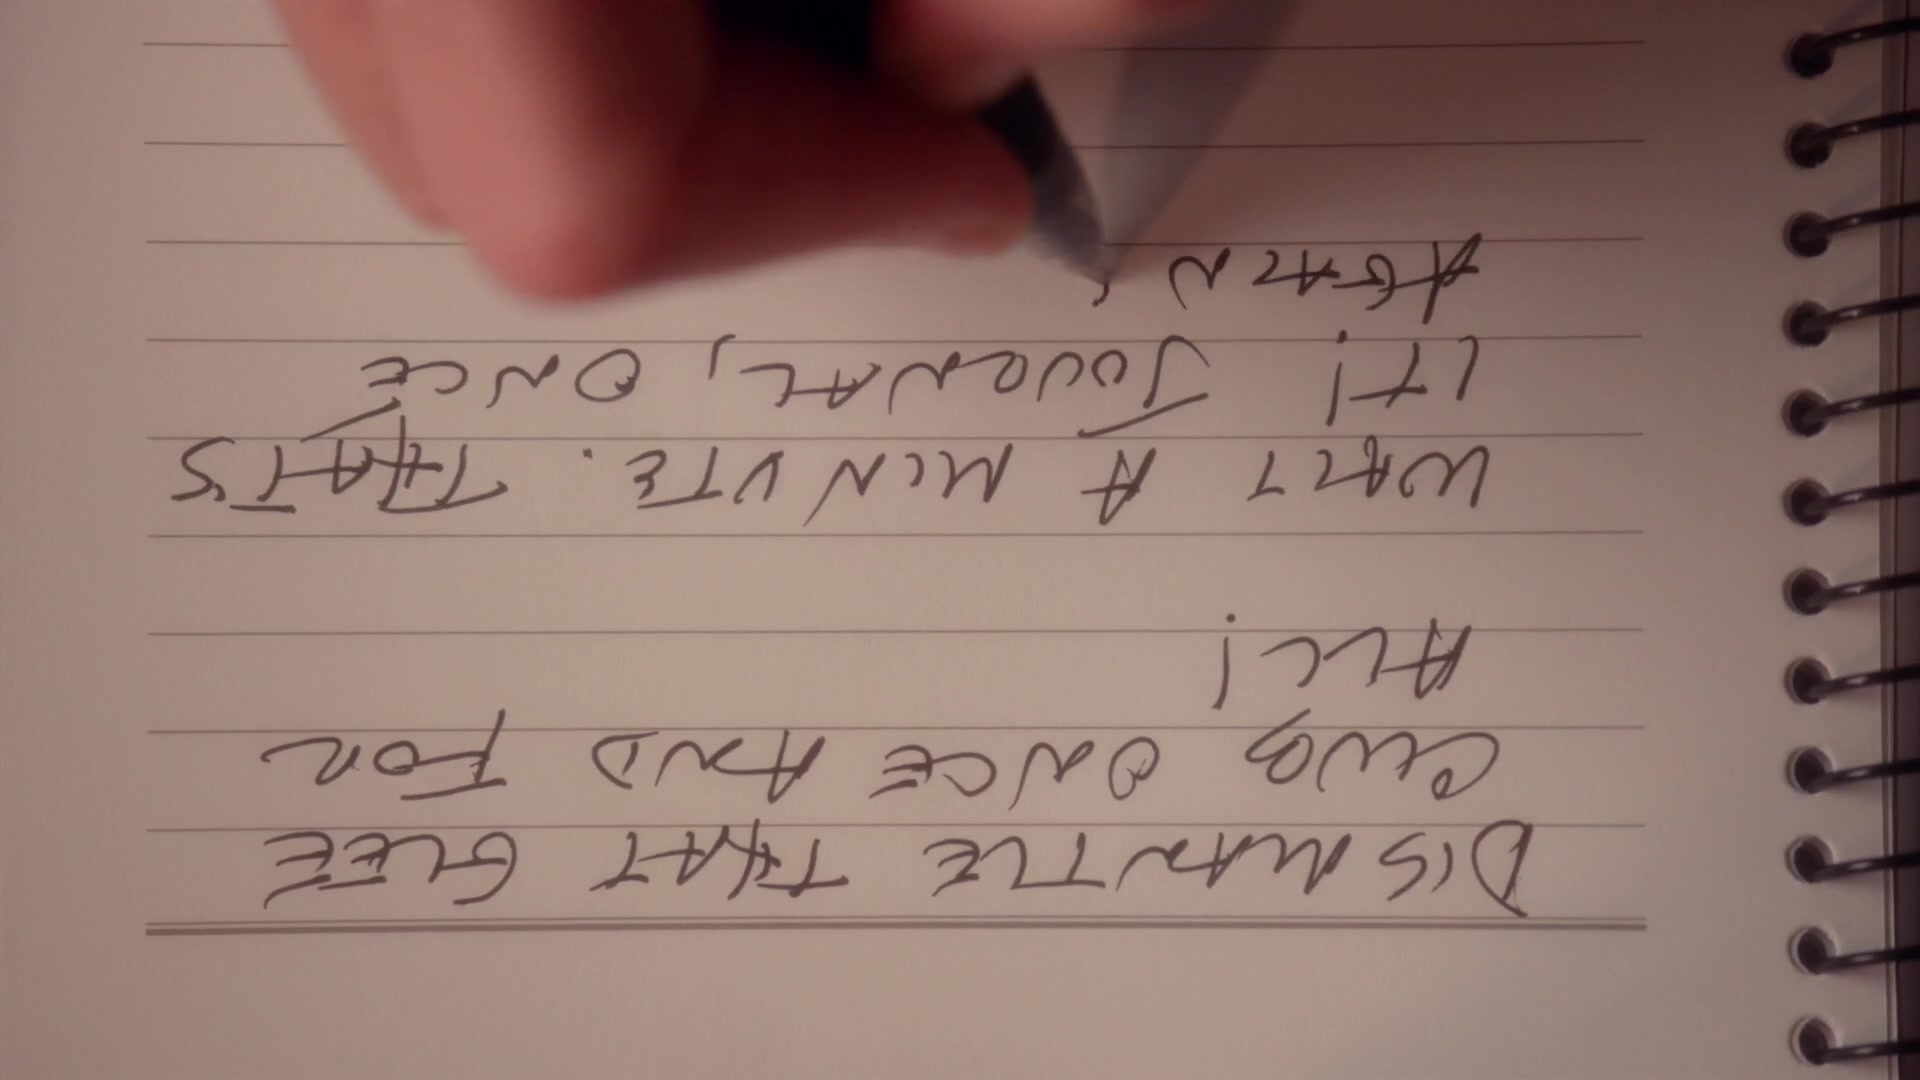 DISMANTLE THAT GLEE
CLUB ONCE AND FOR
ALL!
WAIT A MINUTE. THAT'S
IT! JOURNAL, ONCE
AGAIN,